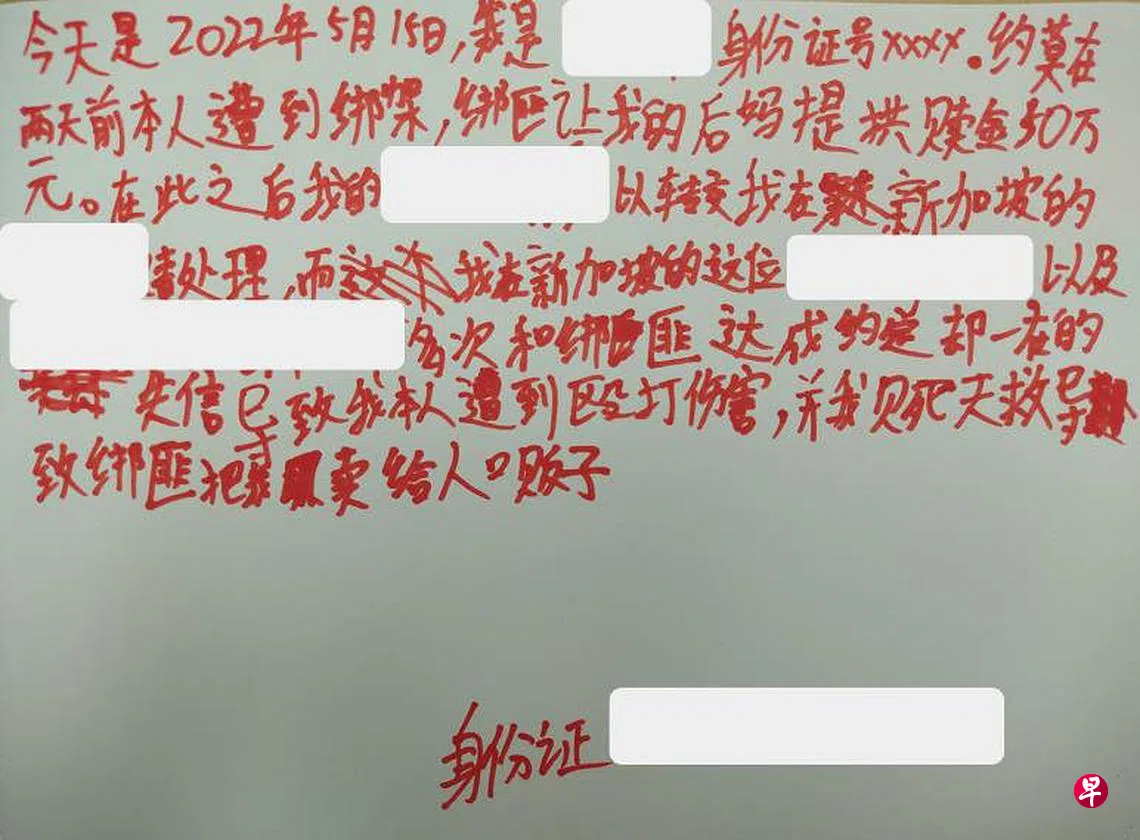 今天是2022年5月15日,我是
身份证号xxxx.约莫在
两天前本人遭到绑架,绑匪让我的后妈提拱赎金50万
元。在此之后我的 以转交我在新加坡的
处理,而我在新加坡的这位 以及
多次和绑匪达成约定却一在的
失信已导致我本人遭到殴打伤害,并
致绑匪把 卖给人口贩子
身份证
早